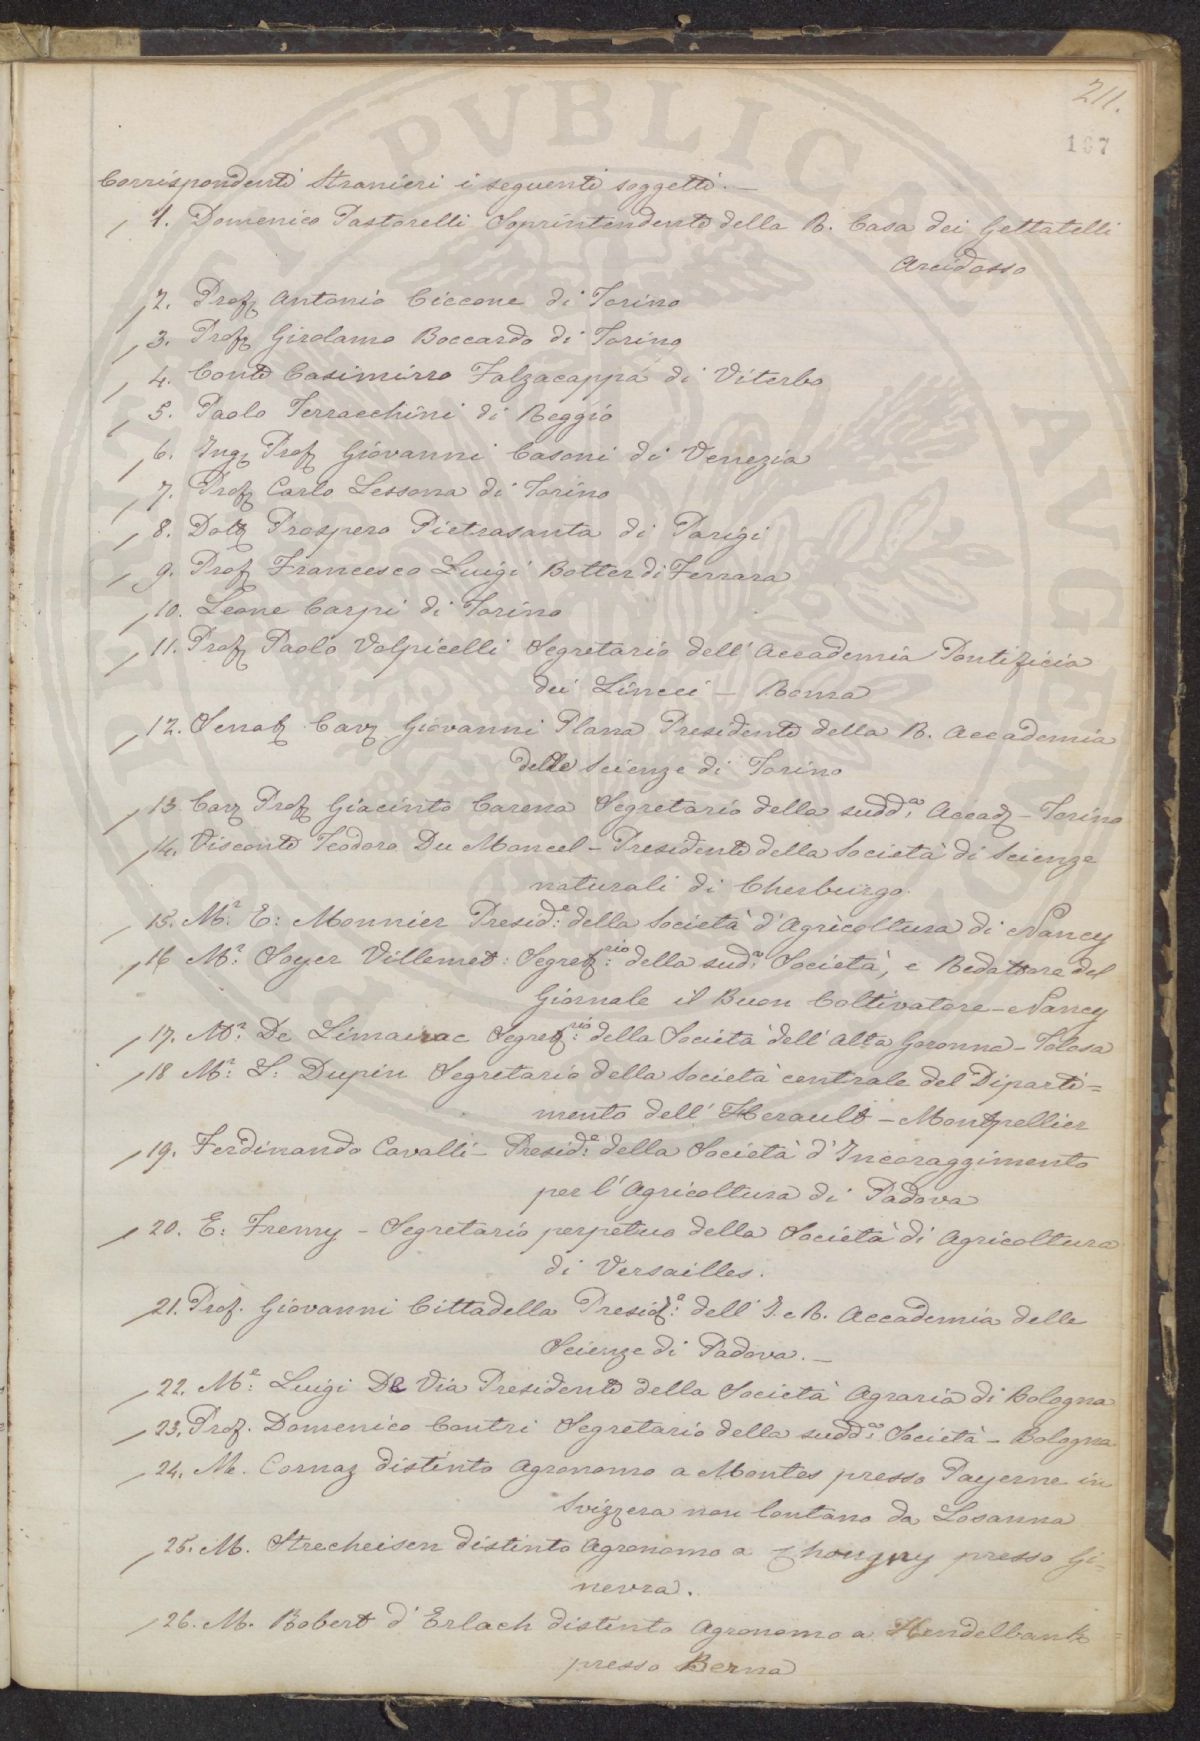 211.
167
Corrispondenti Stranieri i seguenti soggetti. —
1. Domenico Pastorelli Soprintendente della R. Casa dei Gettatelli
Arcidosso
2. Prof. Antonio Ciccone di Torino
3. Prof. Girolamo Boccardo di Torino
4. Conte Casimirro Falzacappa di Viterbo
5. Paolo Terracchini di Reggio
6. Ing. Prof. Giovanni Casoni di Venezia
7. Prof. Carlo Lessona di Torino
8. Dott. Prospero Pietrasanta di Parigi
9. Prof. Francesco Luigi Botter di Ferrara
10. Leone Carpi di Torino
11. Prof. Paolo Volpicelli Segretario dell'Accademia Pontificia
dei Lincei – Roma
12. Senat. Cav. Giovanni Plana Presidente della R. Accademia
delle Scienze di Torino
13 Cav. Prof. Giacinto Carena Segretario della sudd.a Accad. – Torino
14. Visconte Teodoro Du Moncel – Presidente della Società di Scienze
naturali di Cherburgo.
15. M.r E: Monnier Presid.e della Società d'Agricoltura di Nancy
16 M.r Soyer Villemet: Segret.rio della sud.a Società, e Redattore del
Giornale il Buon Coltivatore – Nancy
17. M.r De Limairac Segret.rio della Società dell'Alta Garonna – Tolosa
18 M.r S: Dupin Segretario della Società centrale del Diparti=
mento dell'Herault – Montpellier
19. Ferdinando Cavalli – Presid.e della Società d'Incoraggimento
per l'Agricoltura di Padova
20. E: Fremy – Segretario perpetuo della Società di Agricoltura
di Versailles.
21. Prof. Giovanni Cittadella Presid.e dell'I. e R. Accademia delle
Scienze di Padova. —
22. M.e Luigi De Via Presidente della Società Agraria di Bologna
23. Prof. Domenico Contri Segretario della sudd.a Società – Bologna
24. M. Cornaz distinto Agronomo a Montes presso Payerne in
Svizzera non lontano da Losanna
25. M. Strecheisen distinto Agronomo a presso Gi=
nevra.
26. M. Robert d'Erlach distinto Agronomo a Hendelbank
presso Berna
PVBLICA
AVGE